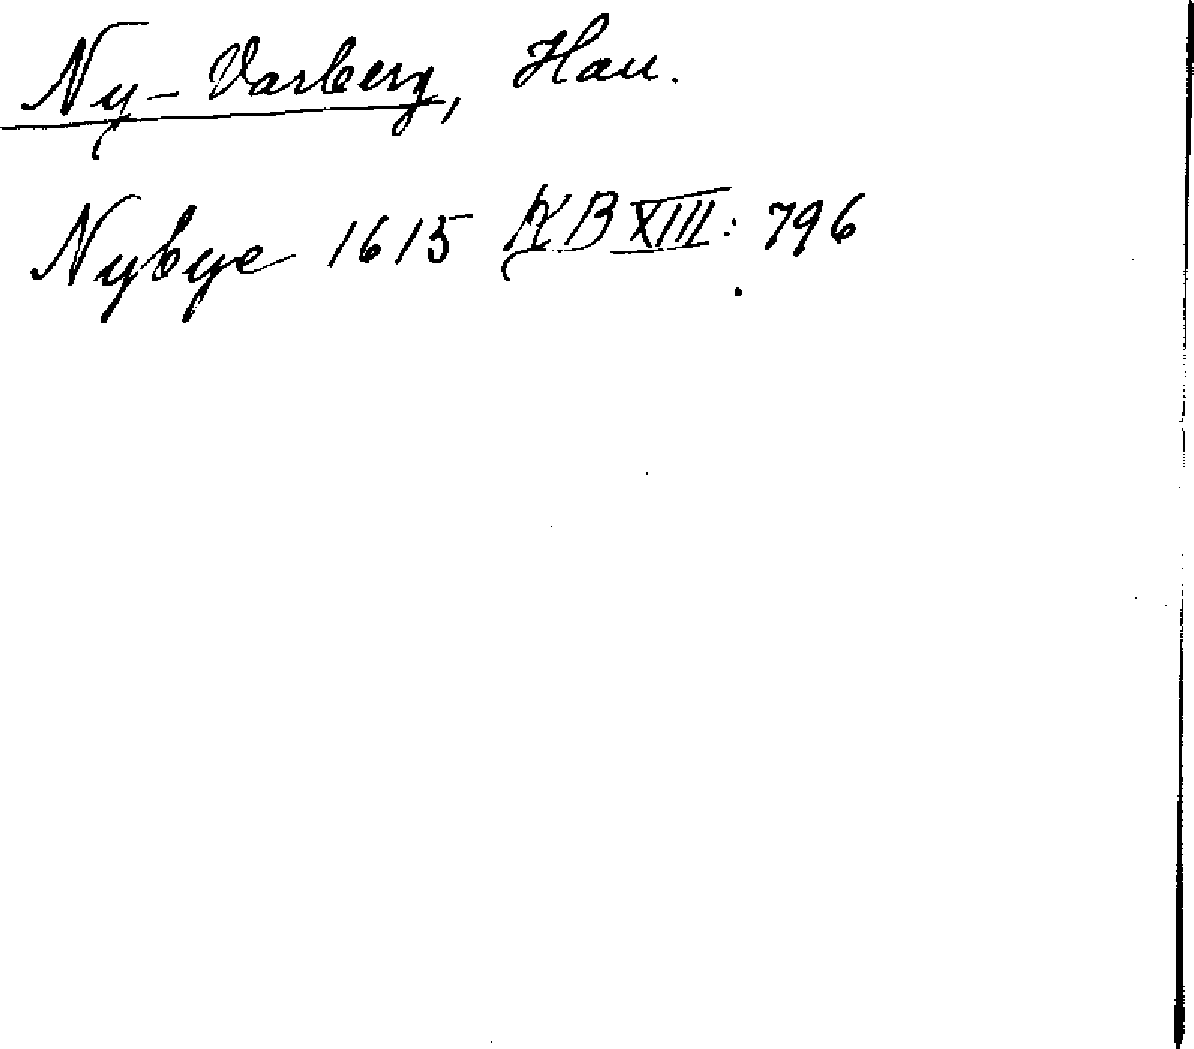 Ny-Varberg, Hau.
Nybye 1615 KB XIII: 796